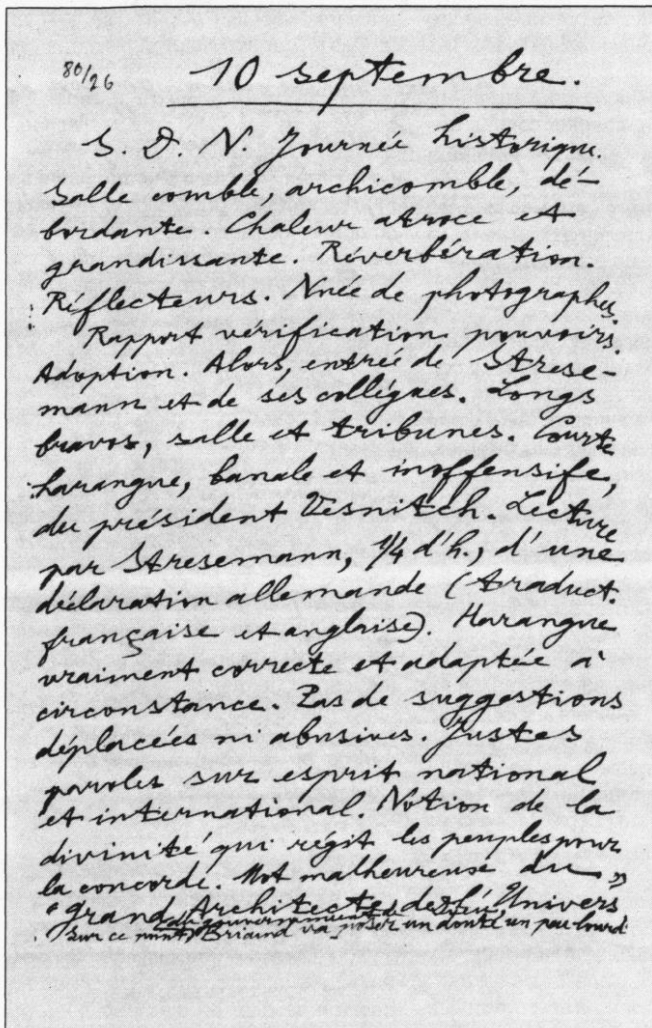 80/26
10 septembre.
S. D. N. Journée historique.
Salle comble, archicomble, dé-
bordante. Chaleur atroce et
grandissante. Réverbération.
Réflecteurs. Nuée de photographes.
Rapport vérification pouvoirs.
Adoption. Alors, entrée de Strese-
mann et de ses collègues. Longs
bravos, salle et tribunes. Courte
harangue, banale et inoffensife,
du président Vesnitch. Lecture
par Stresemann, 1/4 d'h., d'une
déclaration allemande (traduct.
française et anglaise). Harangue
vraiment correcte et adaptée à
circonstance. Pas de suggestions
déplacées ni abusives. Justes
paroles sur esprit national
et international. Notion de la
divinité qui régit les peuples pour
la concorde. Mot malheureux du
"grand Architecte de l'Univers"
du gouvernement de
sur ce point) Briand va poser un doute un peu lourd.